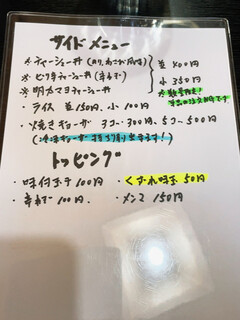 サイドメニュー
※チャーシュー丼
※ピリ辛チャーシュー丼
※明太マヨチャーシュー丼
並 400円
小 350円
※数量限定!
・ライス 並150円、小100円
・焼きギョーザ 3コ〜300円、5コ〜500円
トッピング
・味付玉子 100円
・くずれ味玉 50円
・辛ねぎ 100円
・メンマ 150円